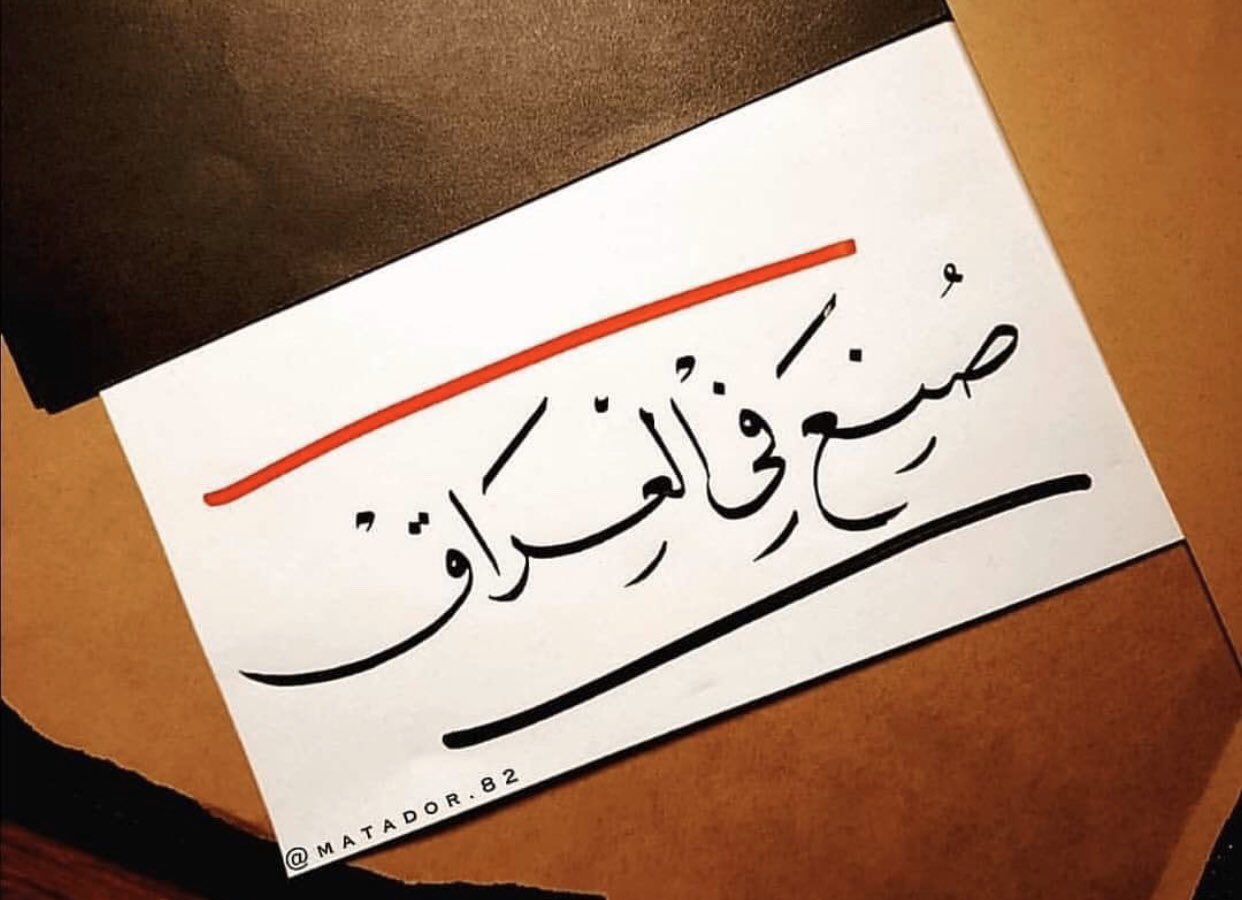 صُنِعَ فِي الْعِرَاقْ
@MATADOR.82